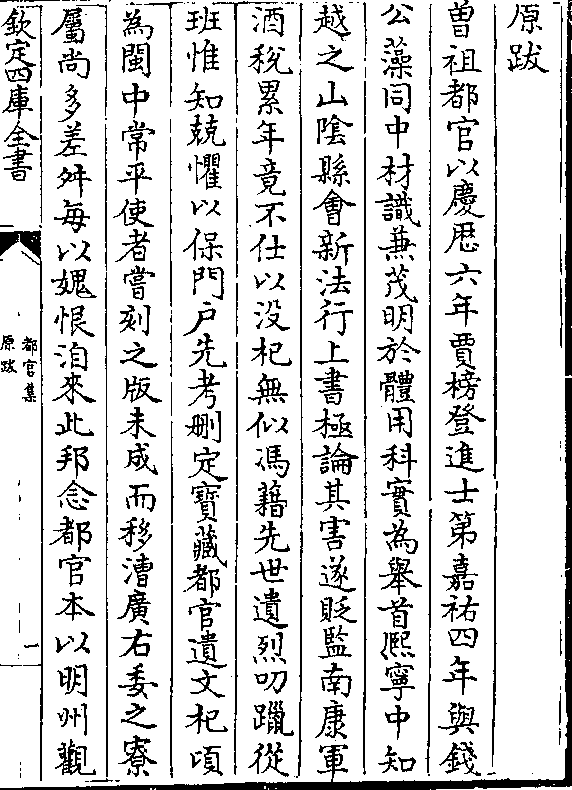 原跋
曽祖都官以慶厯六年賈榜登進士第嘉祐四年與錢
公藻同中材識兼茂明於體用科實為舉首熈寧中知
越之山陰縣會新法行上書極論其害遂貶監南康軍
酒稅累年竟不仕以没杞無似馮藉先世遺烈叨躐從
班惟知兢懼以保門户先考刪定寶藏都官遺文杞頃
為閩中常平使者嘗刻之版未成而移漕廣右委之寮
屬尚多差舛每以媿恨洎來此邦念都官本以明州觀
欽定四庫全書
都官集
原跋
一